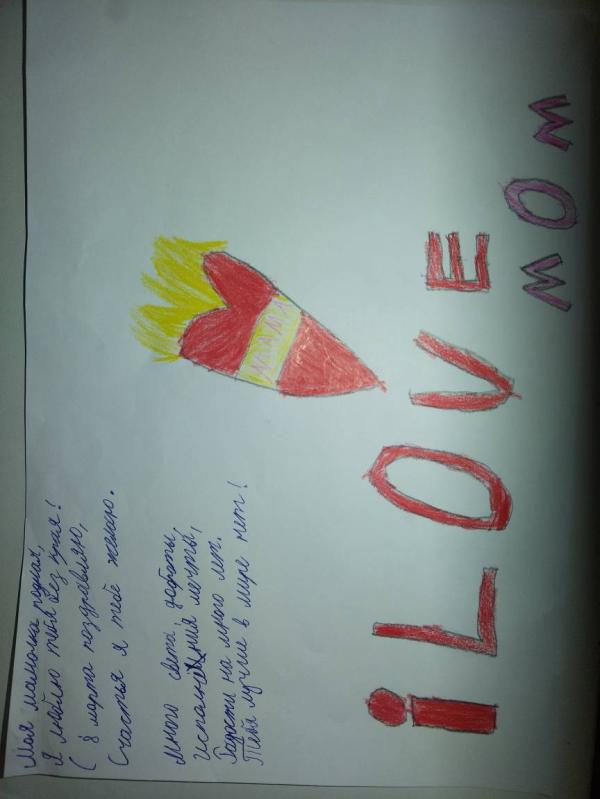 Моя мамочка родная,
Я люблю тебя без края!
С 8 марта поздравляю,
Счастья я тебе желаю.
Много света, доброты,
Исполнения мечты,
Радости на много лет.
Тебя лучше в мире нет!
МАМА
iLOVE
MOM